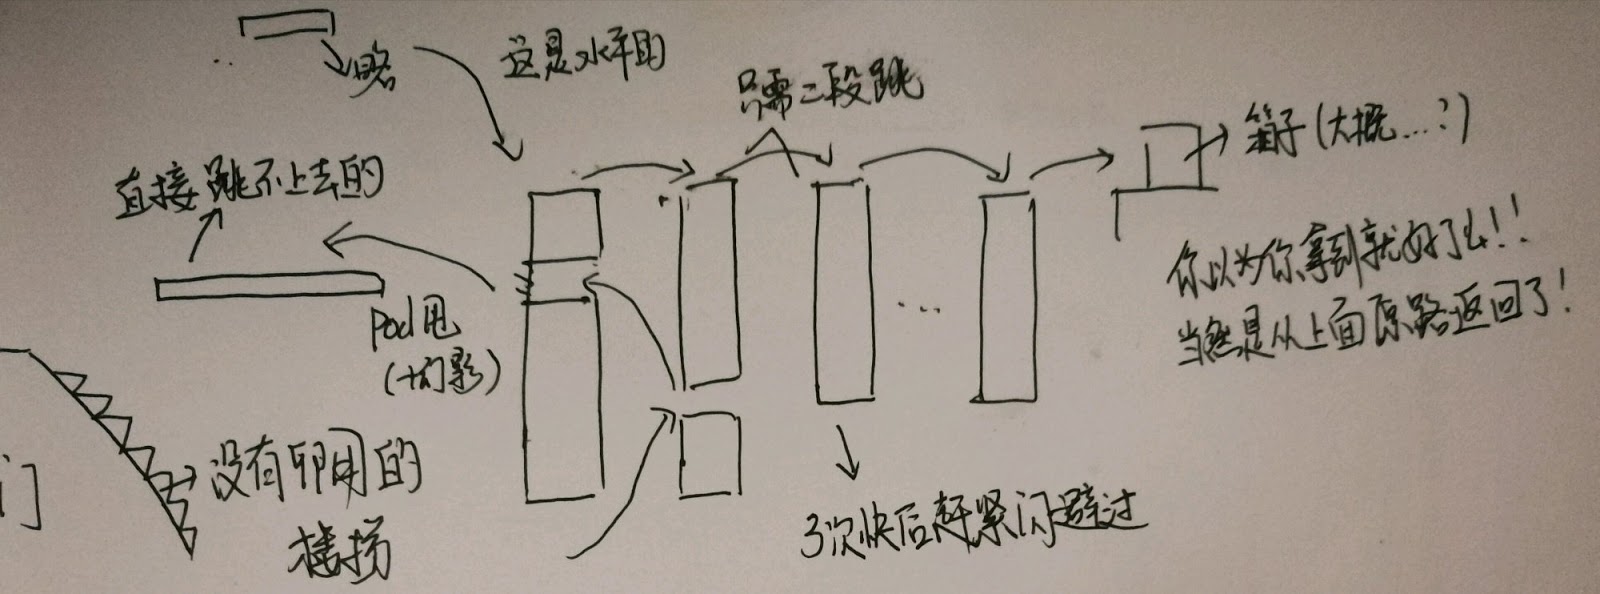 略
这是水平的
只需二段跳
箱子(大概...?)
直接跳不上去的
Pod甩
(+幻影)
你以为你拿到就好了么!!
当然是从上面原路返回了!
没有卵用的
楼梯
3次快后赶紧闪避过
门